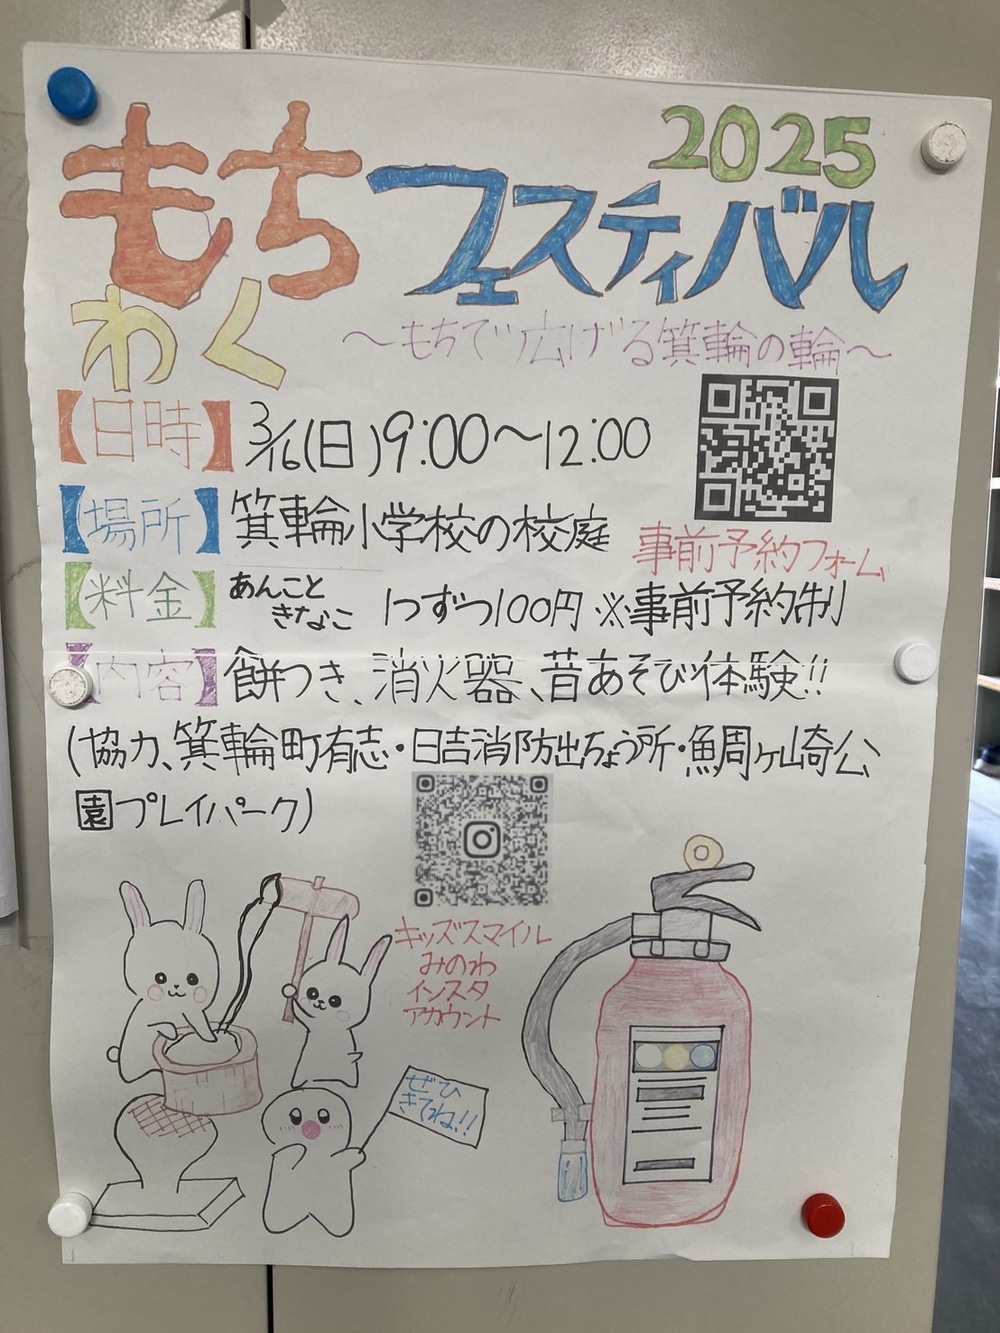 2025
もちフェスティバル
わく
〜もちで広げる箕輪の輪〜
【日時】3/16(日)9:00〜12:00
【場所】箕輪小学校の校庭
事前予約フォーム
【料金】あんこと
きなこ
1つずつ100円 ※事前予約制
【内容】餅つき、消火器、昔あそび体験!!
(協力、箕輪町有志・日吉消防出ちょう所・鯛ヶ崎公
園プレイパーク)
キッズスマイル
みのわ
インスタ
アカウント
ぜひ
きてね!!